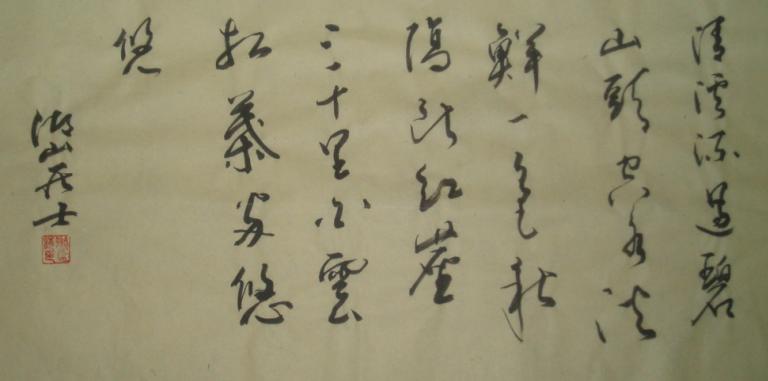 清溪流過碧
山頭空水澄
鮮一色秋
隔斷紅塵
三十里白雲
紅葉兩悠
悠
湖山居士